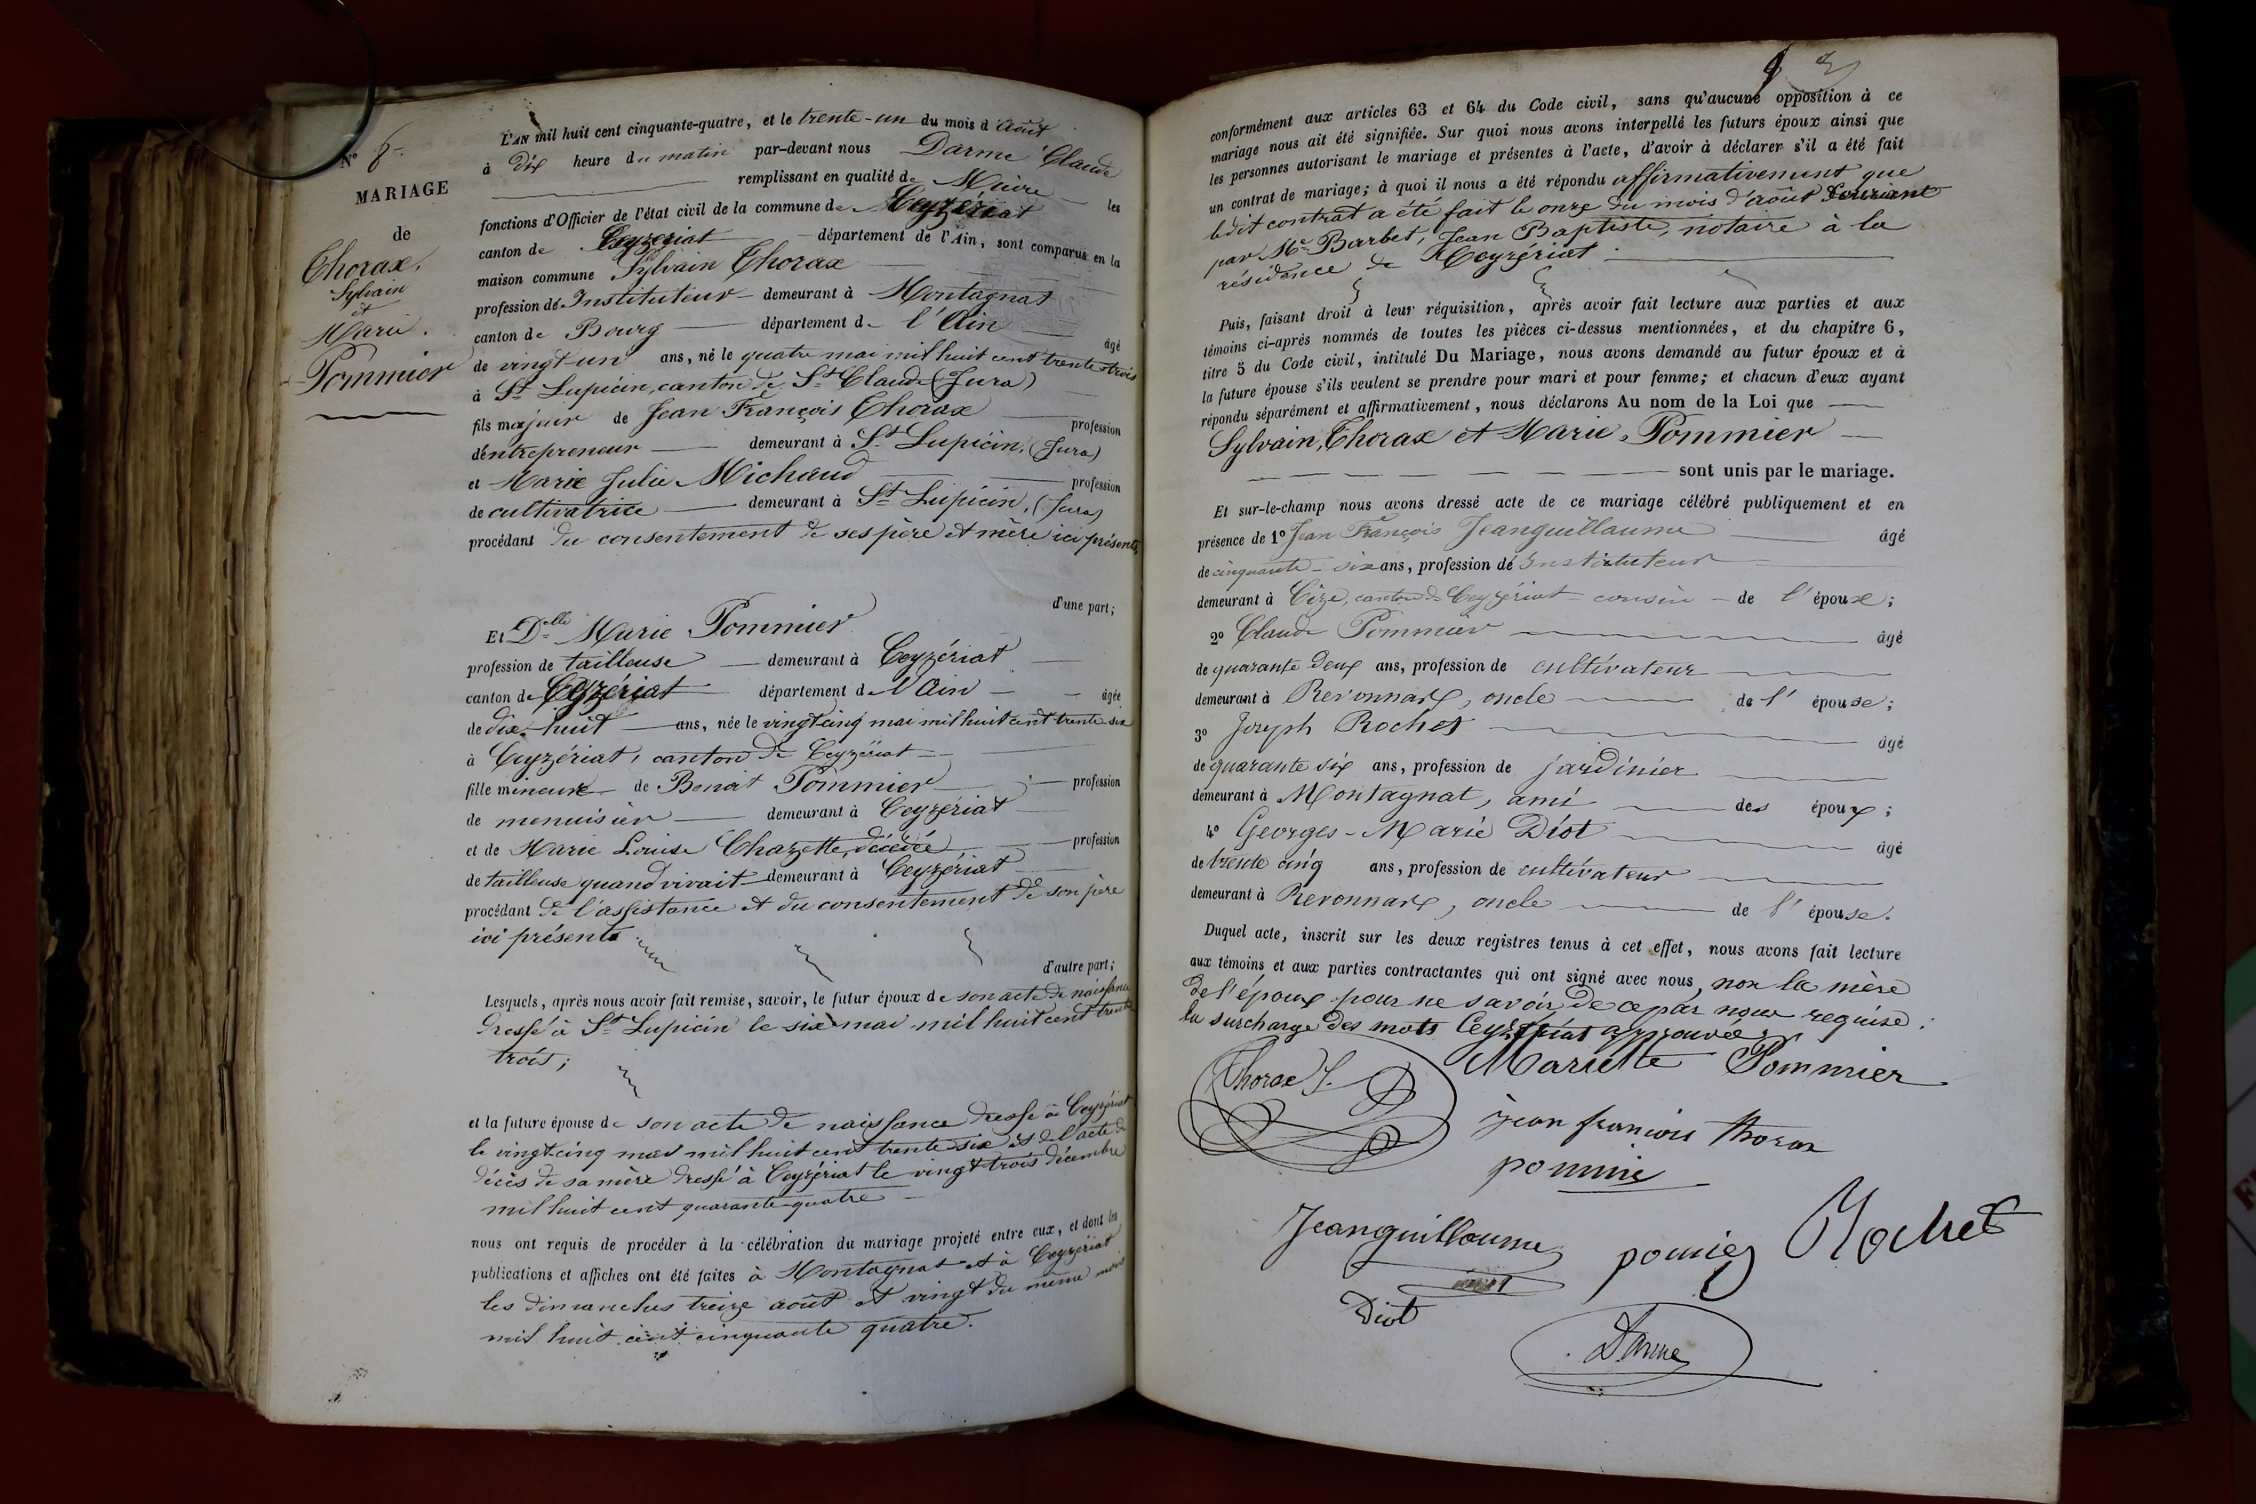 N° 8
MARIAGE
de
Thorax,
Sylvain
et
Marie
Pommier
L'AN mil huit cent cinquante-quatre, et le trente-un du mois d'août
à dix heure du matin par-devant nous Darme Claude
remplissant en qualité de Maire les
fonctions d'Officier de l'état civil de la commune de Ceyzériat
canton de Ceyzériat département de l'Ain, sont comparus en la
maison commune Sylvain Thorax
profession dé Instituteur demeurant à Montagnat
canton de Bourg département de l'Ain âgé
de vingt-un ans, né le quatre mai mil huit cent trente-trois
à St Lupicin, canton de St Claude (Jura)
fils majeur de Jean François Thorax profession
d'entrepreneur demeurant à St Lupicin, (Jura)
et Marie Julie Michaud profession
de cultivatrice demeurant à St Lupicin, (Jura)
procédant du consentement de ses père et mère ici présents,
d'une part;
Et Delle Marie Pommier
profession de tailleuse demeurant à Ceyzériat
canton de Ceyzériat département de l'Ain âgée
de dix-huit ans, née le vingt cinq mai mil huit cent trente six
à Ceyzériat, canton de Ceyzériat
fille mineure de Benoit Pommier profession
de menuisier demeurant à Ceyzériat
et de Marie Louise Chazette, décédée profession
de tailleuse quand vivait demeurant à Ceyzériat
procédant de l'assistance et du consentement de son père
ici présents
d'autre part;
Lesquels, après nous avoir fait remise, savoir, le futur époux de son acte de naissance
dressé à St Lupicin le six mai mil huit cent trente
trois;
et la future épouse de son acte de naissance dressé à Ceyzériat
le vingt cinq mai mil huit cent trente six et de l'acte de
décès de sa mère dressé à Ceyzériat le vingt trois décembre
mil huit cent quarante-quatre
nous ont requis de procéder à la célébration du mariage projeté entre eux, et dont les
publications et affiches ont été faites à Montagnat et à Ceyzériat
les dimanches treize août et vingt du même mois
mil huit cent cinquante quatre.
conformément aux articles 63 et 64 du Code civil, sans qu'aucune opposition à ce
mariage nous ait été signifiée. Sur quoi nous avons interpellé les futurs époux ainsi que
les personnes autorisant le mariage et présentes à l'acte, d'avoir à déclarer s'il a été fait
un contrat de mariage; à quoi il nous a été répondu affirmativement que
ledit contrat a été fait le onze du mois d'août courant
par Me Barbet, Jean Baptiste, notaire à la
résidence de Ceyzériat.
Puis, faisant droit à leur réquisition, après avoir fait lecture aux parties et aux
témoins ci-après nommés de toutes les pièces ci-dessus mentionnées, et du chapitre 6,
titre 5 du Code civil, intitulé Du Mariage, nous avons demandé au futur époux et à
la future épouse s'ils veulent se prendre pour mari et pour femme; et chacun d'eux ayant
répondu séparément et affirmativement, nous déclarons Au nom de la Loi que
Sylvain, Thorax et Marie, Pommier
sont unis par le mariage.
Et sur-le-champ nous avons dressé acte de ce mariage célébré publiquement et en
présence de 1° Jean François Jeanguillaume âgé
de cinquante-six ans, profession dé Instituteur
demeurant à Cize, canton de Ceyzériat cousin de l'époux;
2° Claude Pommier âgé
de quarante deux ans, profession de cultivateur
demeurant à Revonnax, oncle de l'épouse;
3° Joseph Rochet âgé
de quarante six ans, profession de jardinier
demeurant à Montagnat, ami des époux;
4° Georges-Marie Diot âgé
de trente cinq ans, profession de cultivateur
demeurant à Revonnax, oncle de l'épouse.
Duquel acte, inscrit sur les deux registres tenus à cet effet, nous avons fait lecture
aux témoins et aux parties contractantes qui ont signé avec nous, non la mère
de l'époux pour ne savoir de ce par nous requise;
la surcharge des mots Ceyzériat approuvée.
Thorax S. Mariette Pommier
jean francois thorax
pommie
Jeanguillaume pomier Rochet
Diot
Darme